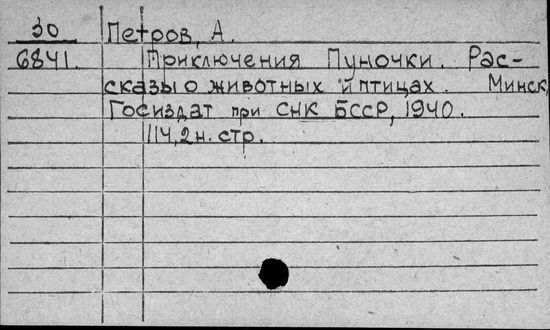 30 Петров, А.
6841. Приключения Пуночки. Рас-
сказы о животных и птицах. Минск,
Госиздат при СНК БССР, 1940.
114,2 н. стр.